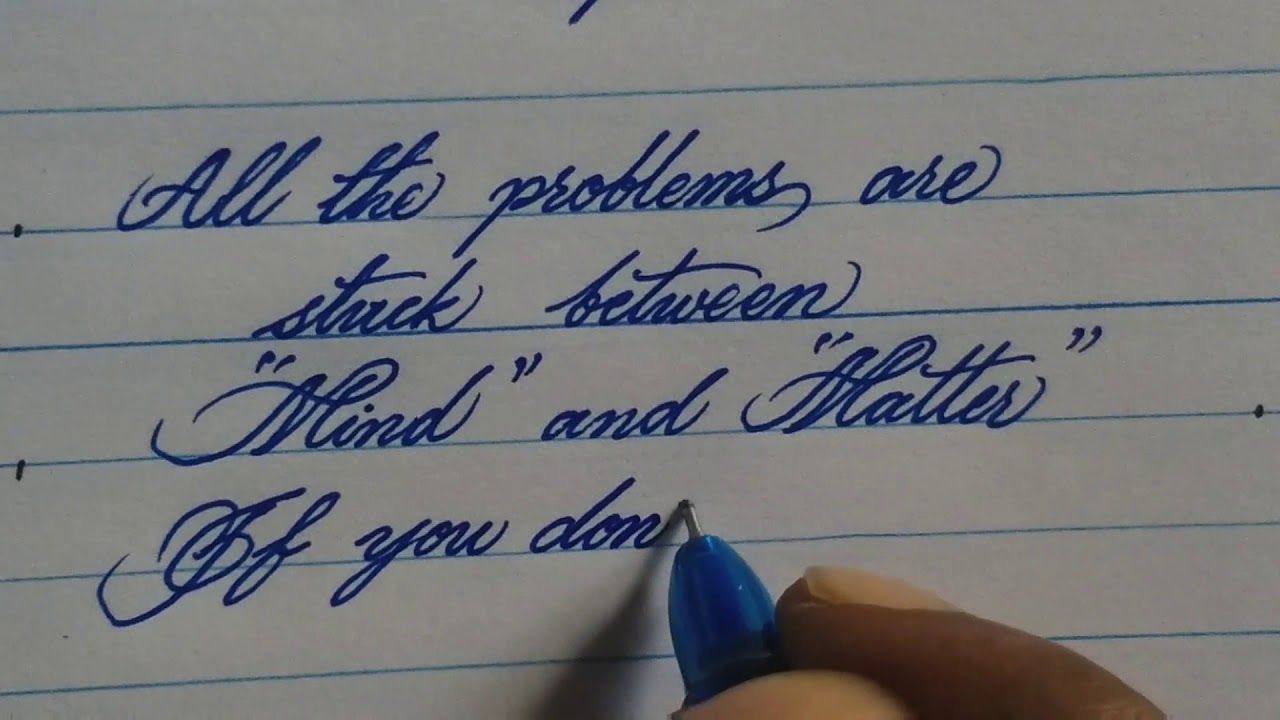 All the problems are
stuck between
"Mind" and "Matter"
If you don